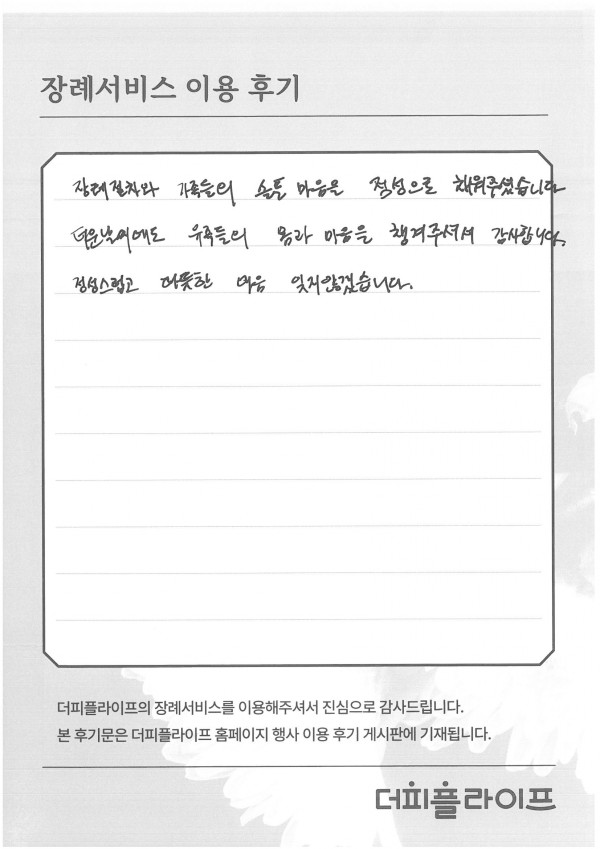 장례서비스 이용 후기
장례절차와 가족들의 슬픈 마음을 정성으로 채워주셨습니다
더운날씨에도 유족들의 몸과 마음을 챙겨주셔서 감사합니다.
정성스럽고 따뜻한 마음 잊지않겠습니다.
더피플라이프의 장례서비스를 이용해주셔서 진심으로 감사드립니다.
본 후기문은 더피플라이프 홈페이지 행사 이용 후기 게시판에 기재됩니다.
더피플라이프